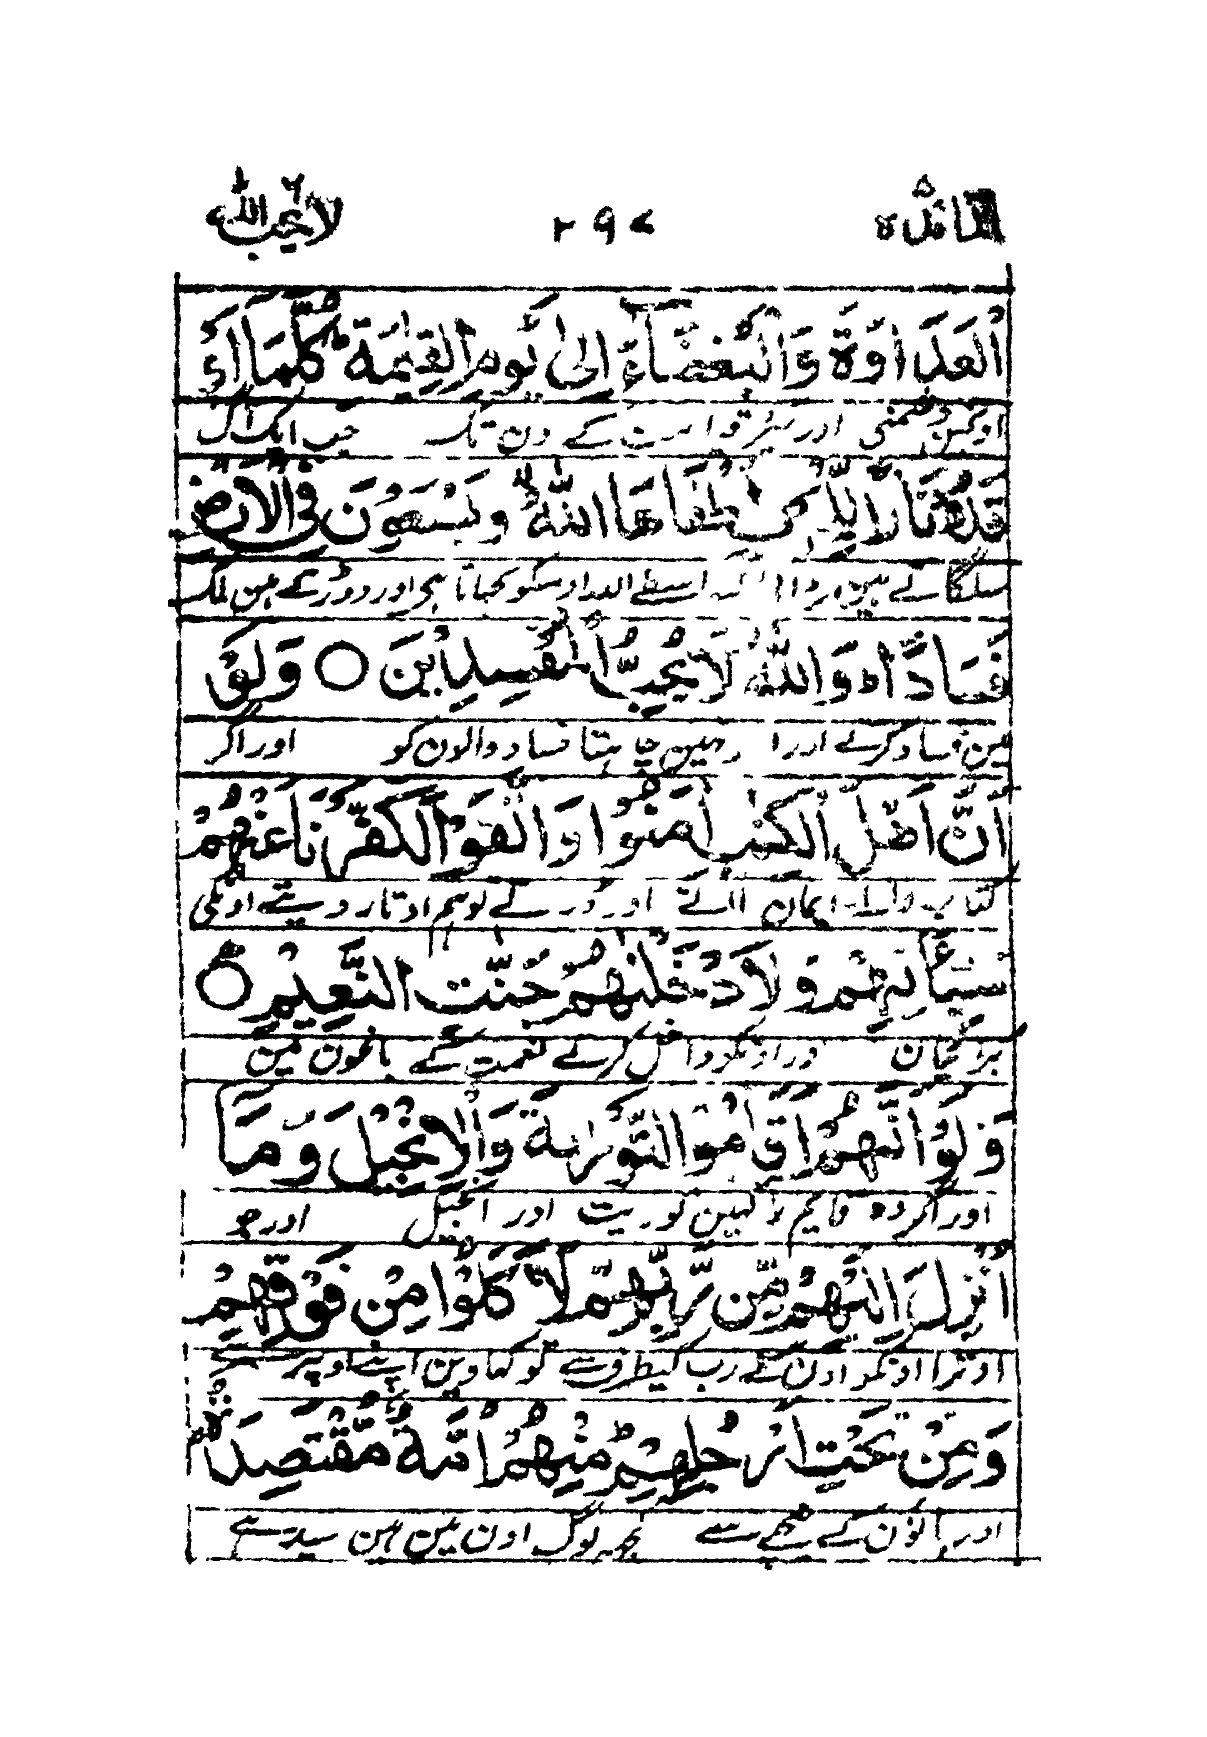 المائدة ٥ ٢٩٧ لا يحب الله ٦
الْعَدَاوَةَ وَالْبَغْضَآءَ اِلٰى يَوْمِ الْقِيٰمَةِ ط كُلَّمَآ اَوْ
دشمنی اور دن تک جب ایک آگ
قَدُوْا نَارًا لِّلْحَرْبِ اَطْفَاَهَا اللّٰهُ وَيَسْعَوْنَ فِى الْاَرْضِ
سلگاتے ہین واسطے اللہ اوسکو بجھاتا ہی اور دوڑتے ہین ملک
فَسَادًا ط وَاللّٰهُ لَا يُحِبُّ الْمُفْسِدِيْنَ ○ وَلَوْ
مین فساد کرتے اور نہین چاہتا فساد والون کو اور اگر
اَنَّ اَهْلَ الْكِتٰبِ اٰمَنُوْا وَاتَّقَوْا لَكَفَّرْنَا عَنْهُمْ
کتاب والے ایمان لاتے اور ڈرتے تو ہم اوتار دیتے اونکی
سَيِّاٰتِهِمْ وَلَاَدْخَلْنٰهُمْ جَنّٰتِ النَّعِيْمِ ○
برائیان اور اونکو داخل کرتے نعمت کے باغون مین
وَلَوْ اَنَّهُمْ اَقَامُوا التَّوْرٰىةَ وَالْاِنْجِيْلَ وَمَآ
اور اگر وہ قایم رکھین توریت اور انجیل اور جو
اُنْزِلَ اِلَيْهِمْ مِّنْ رَّبِّهِمْ لَاَكَلُوْا مِنْ فَوْقِهِمْ
اوترا اونکو اون کے رب کیطرف سے تو کھاوین اپنے اوپر سے
وَمِنْ تَحْتِ اَرْجُلِهِمْ ط مِنْهُمْ اُمَّةٌ مُّقْتَصِدَةٌ
اور پانون کے نیچے سے کچھ لوگ اون مین ہین سیدھے